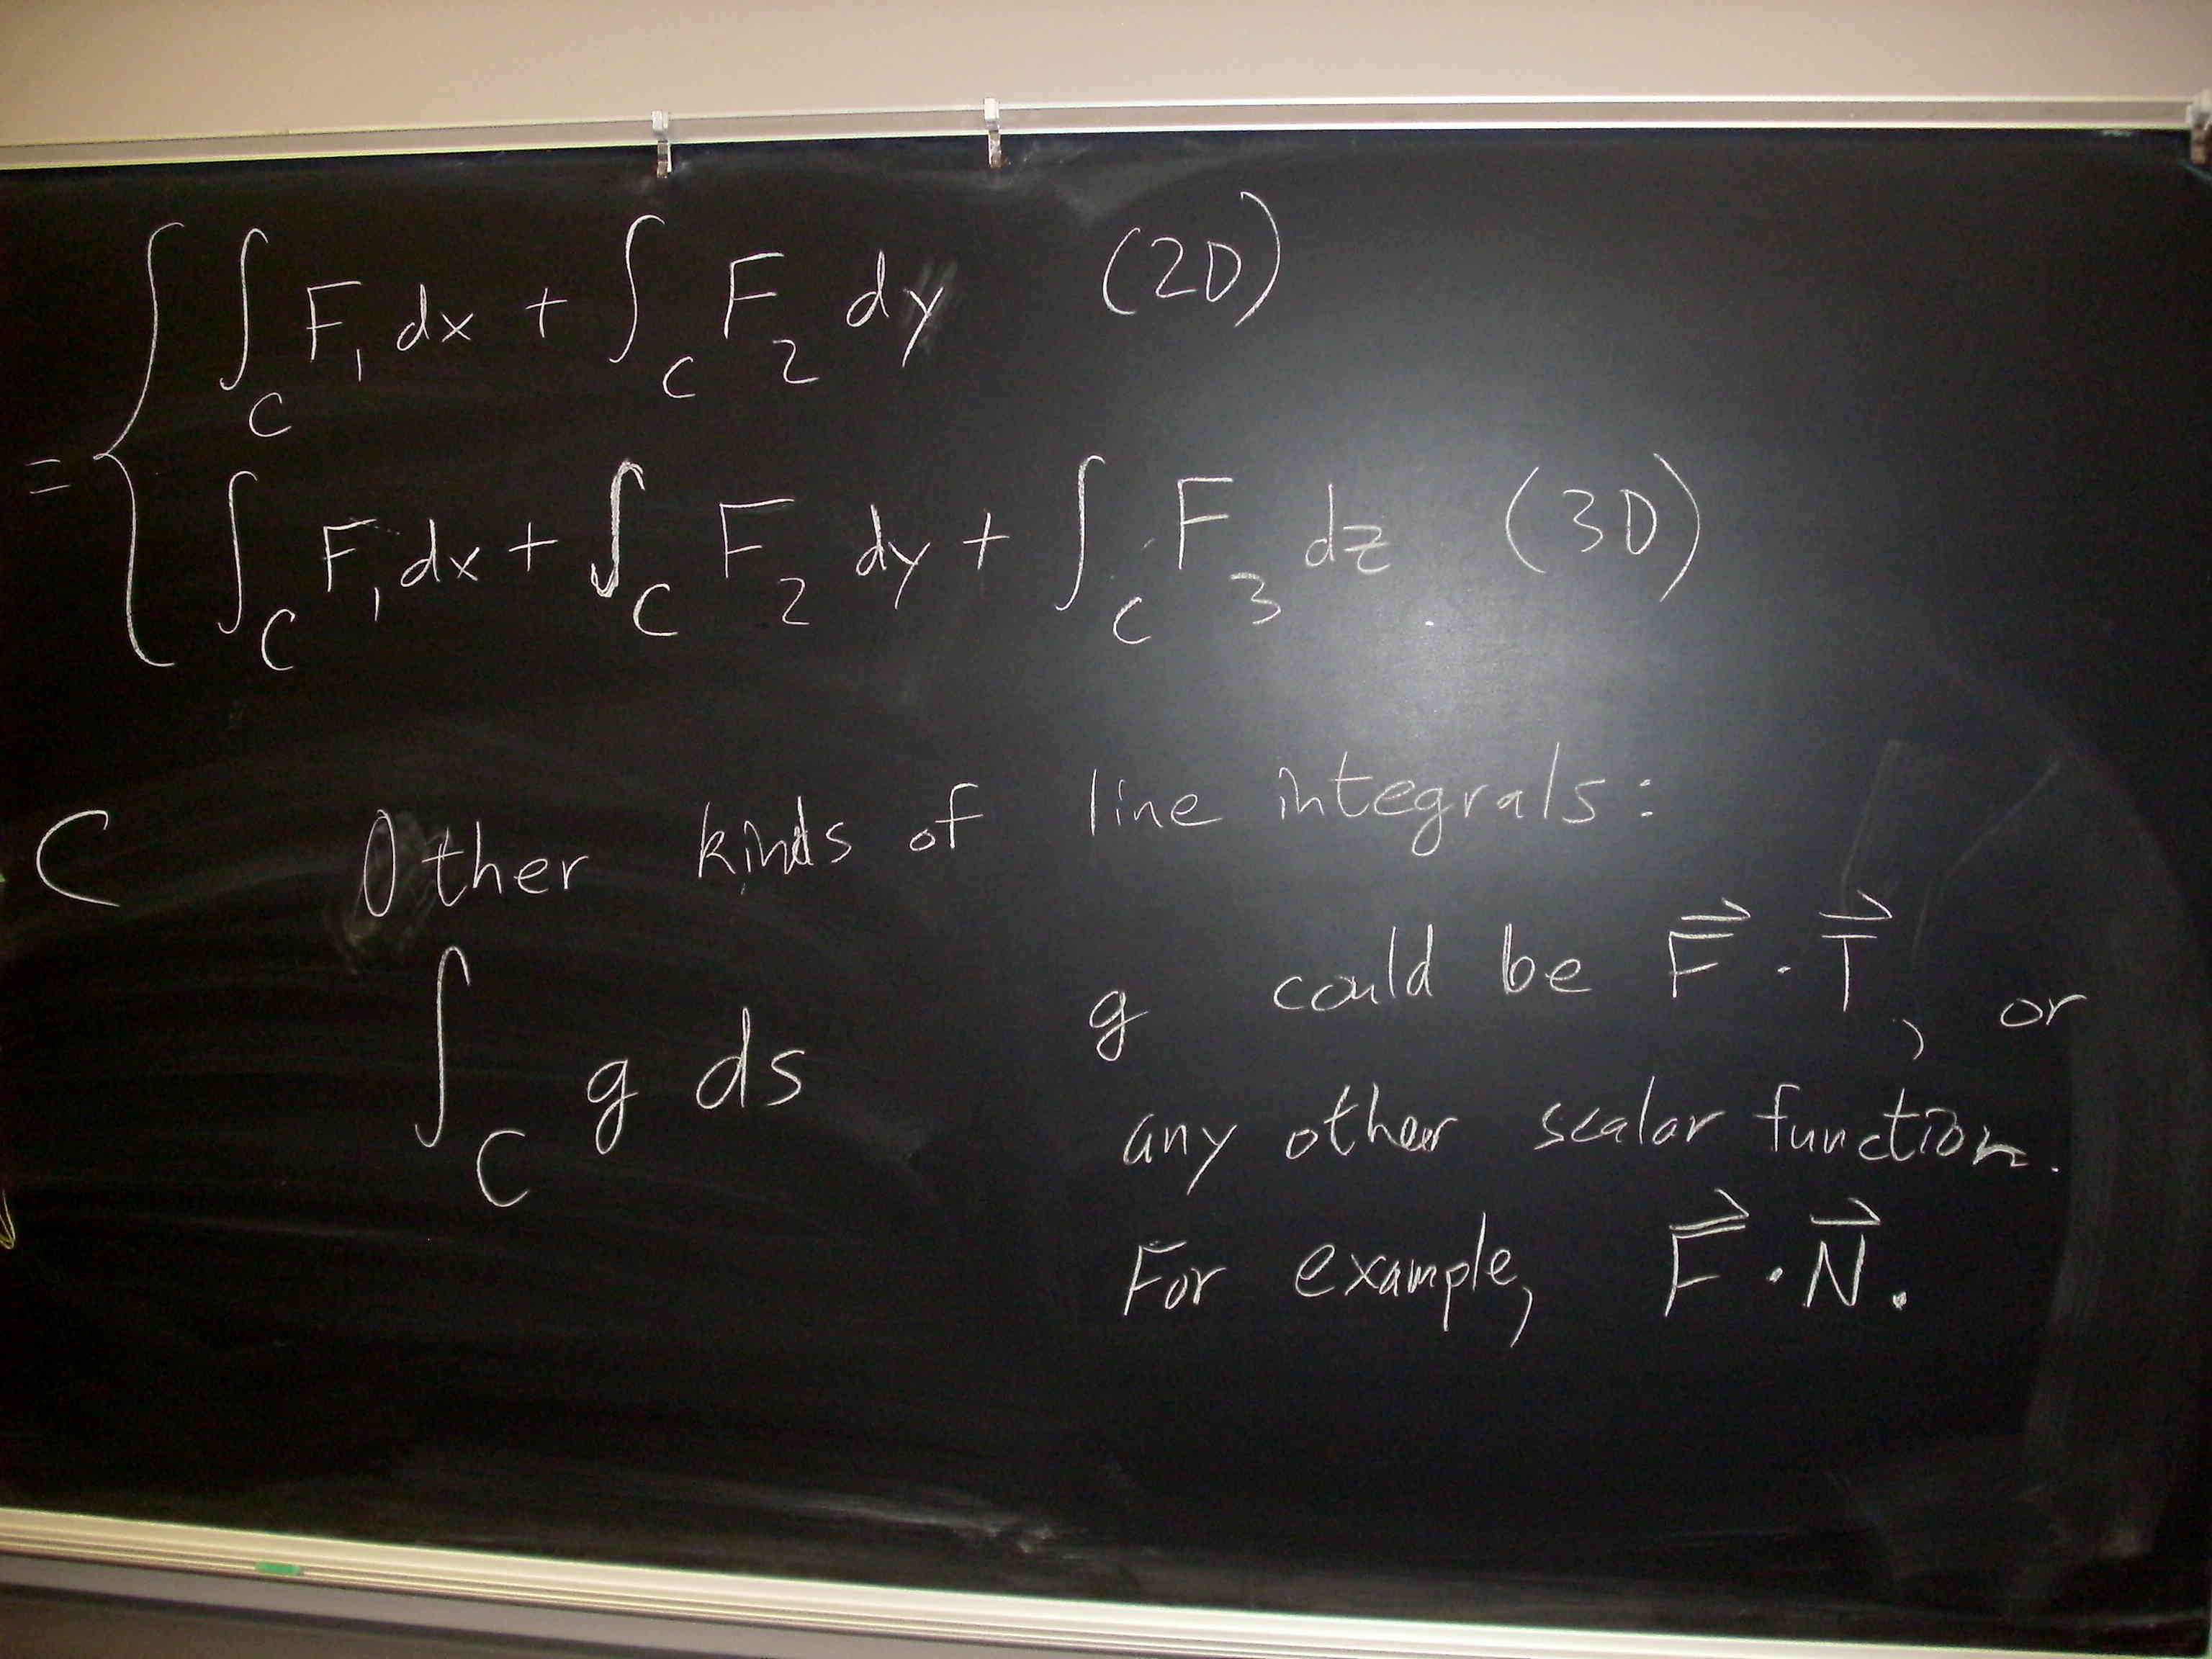 = { ∫_C F₁ dx + ∫_C F₂ dy (2D)
∫_C F₁ dx + ∫_C F₂ dy + ∫_C F₃ dz (3D)
C Other kinds of line integrals:
∫_C g ds
g could be F⃗ · T⃗, or
any other scalar function.
For example, F⃗ · N⃗.